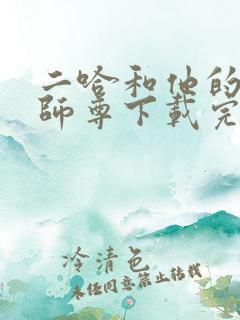 二哈和他的
師尊下載完
冷清色
未经同意禁止转载